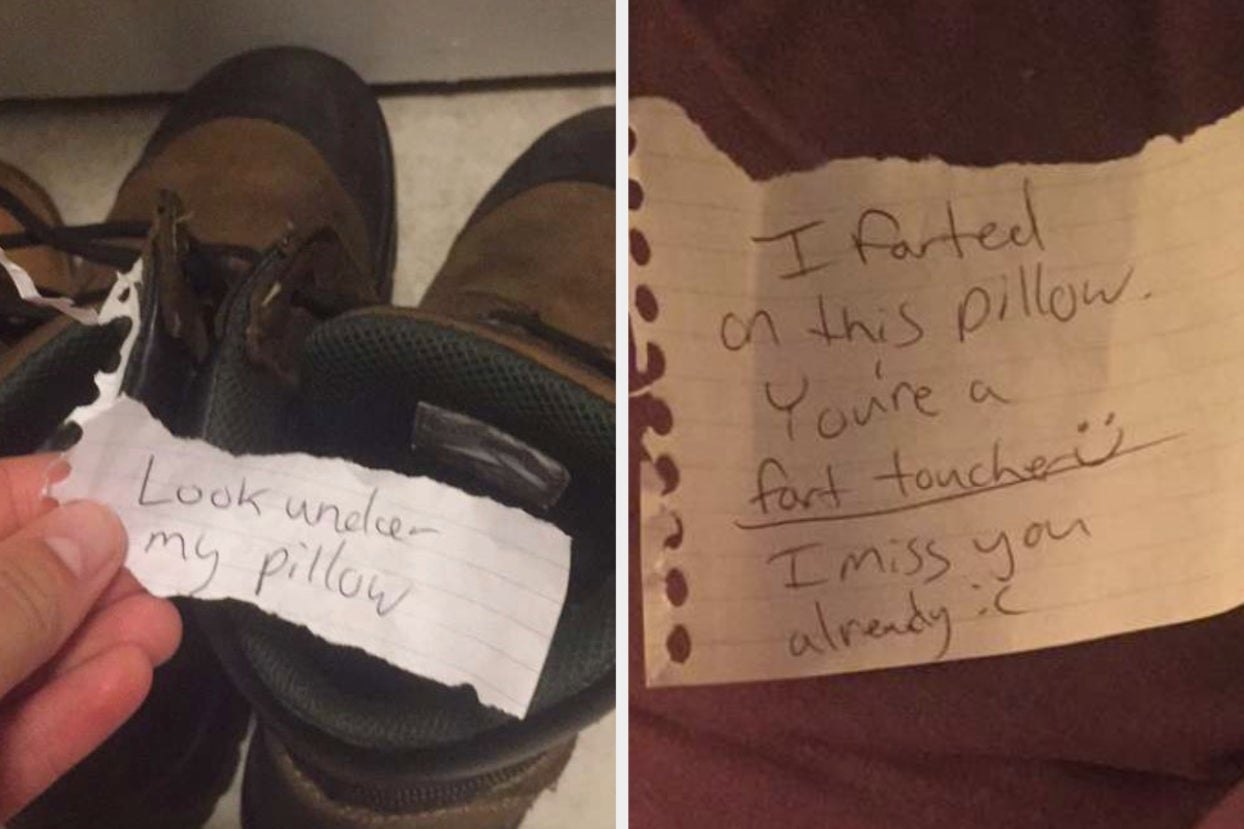 Look under
my pillow
I farted
on this pillow.
You're a
fart toucher :)
I miss you
already :(